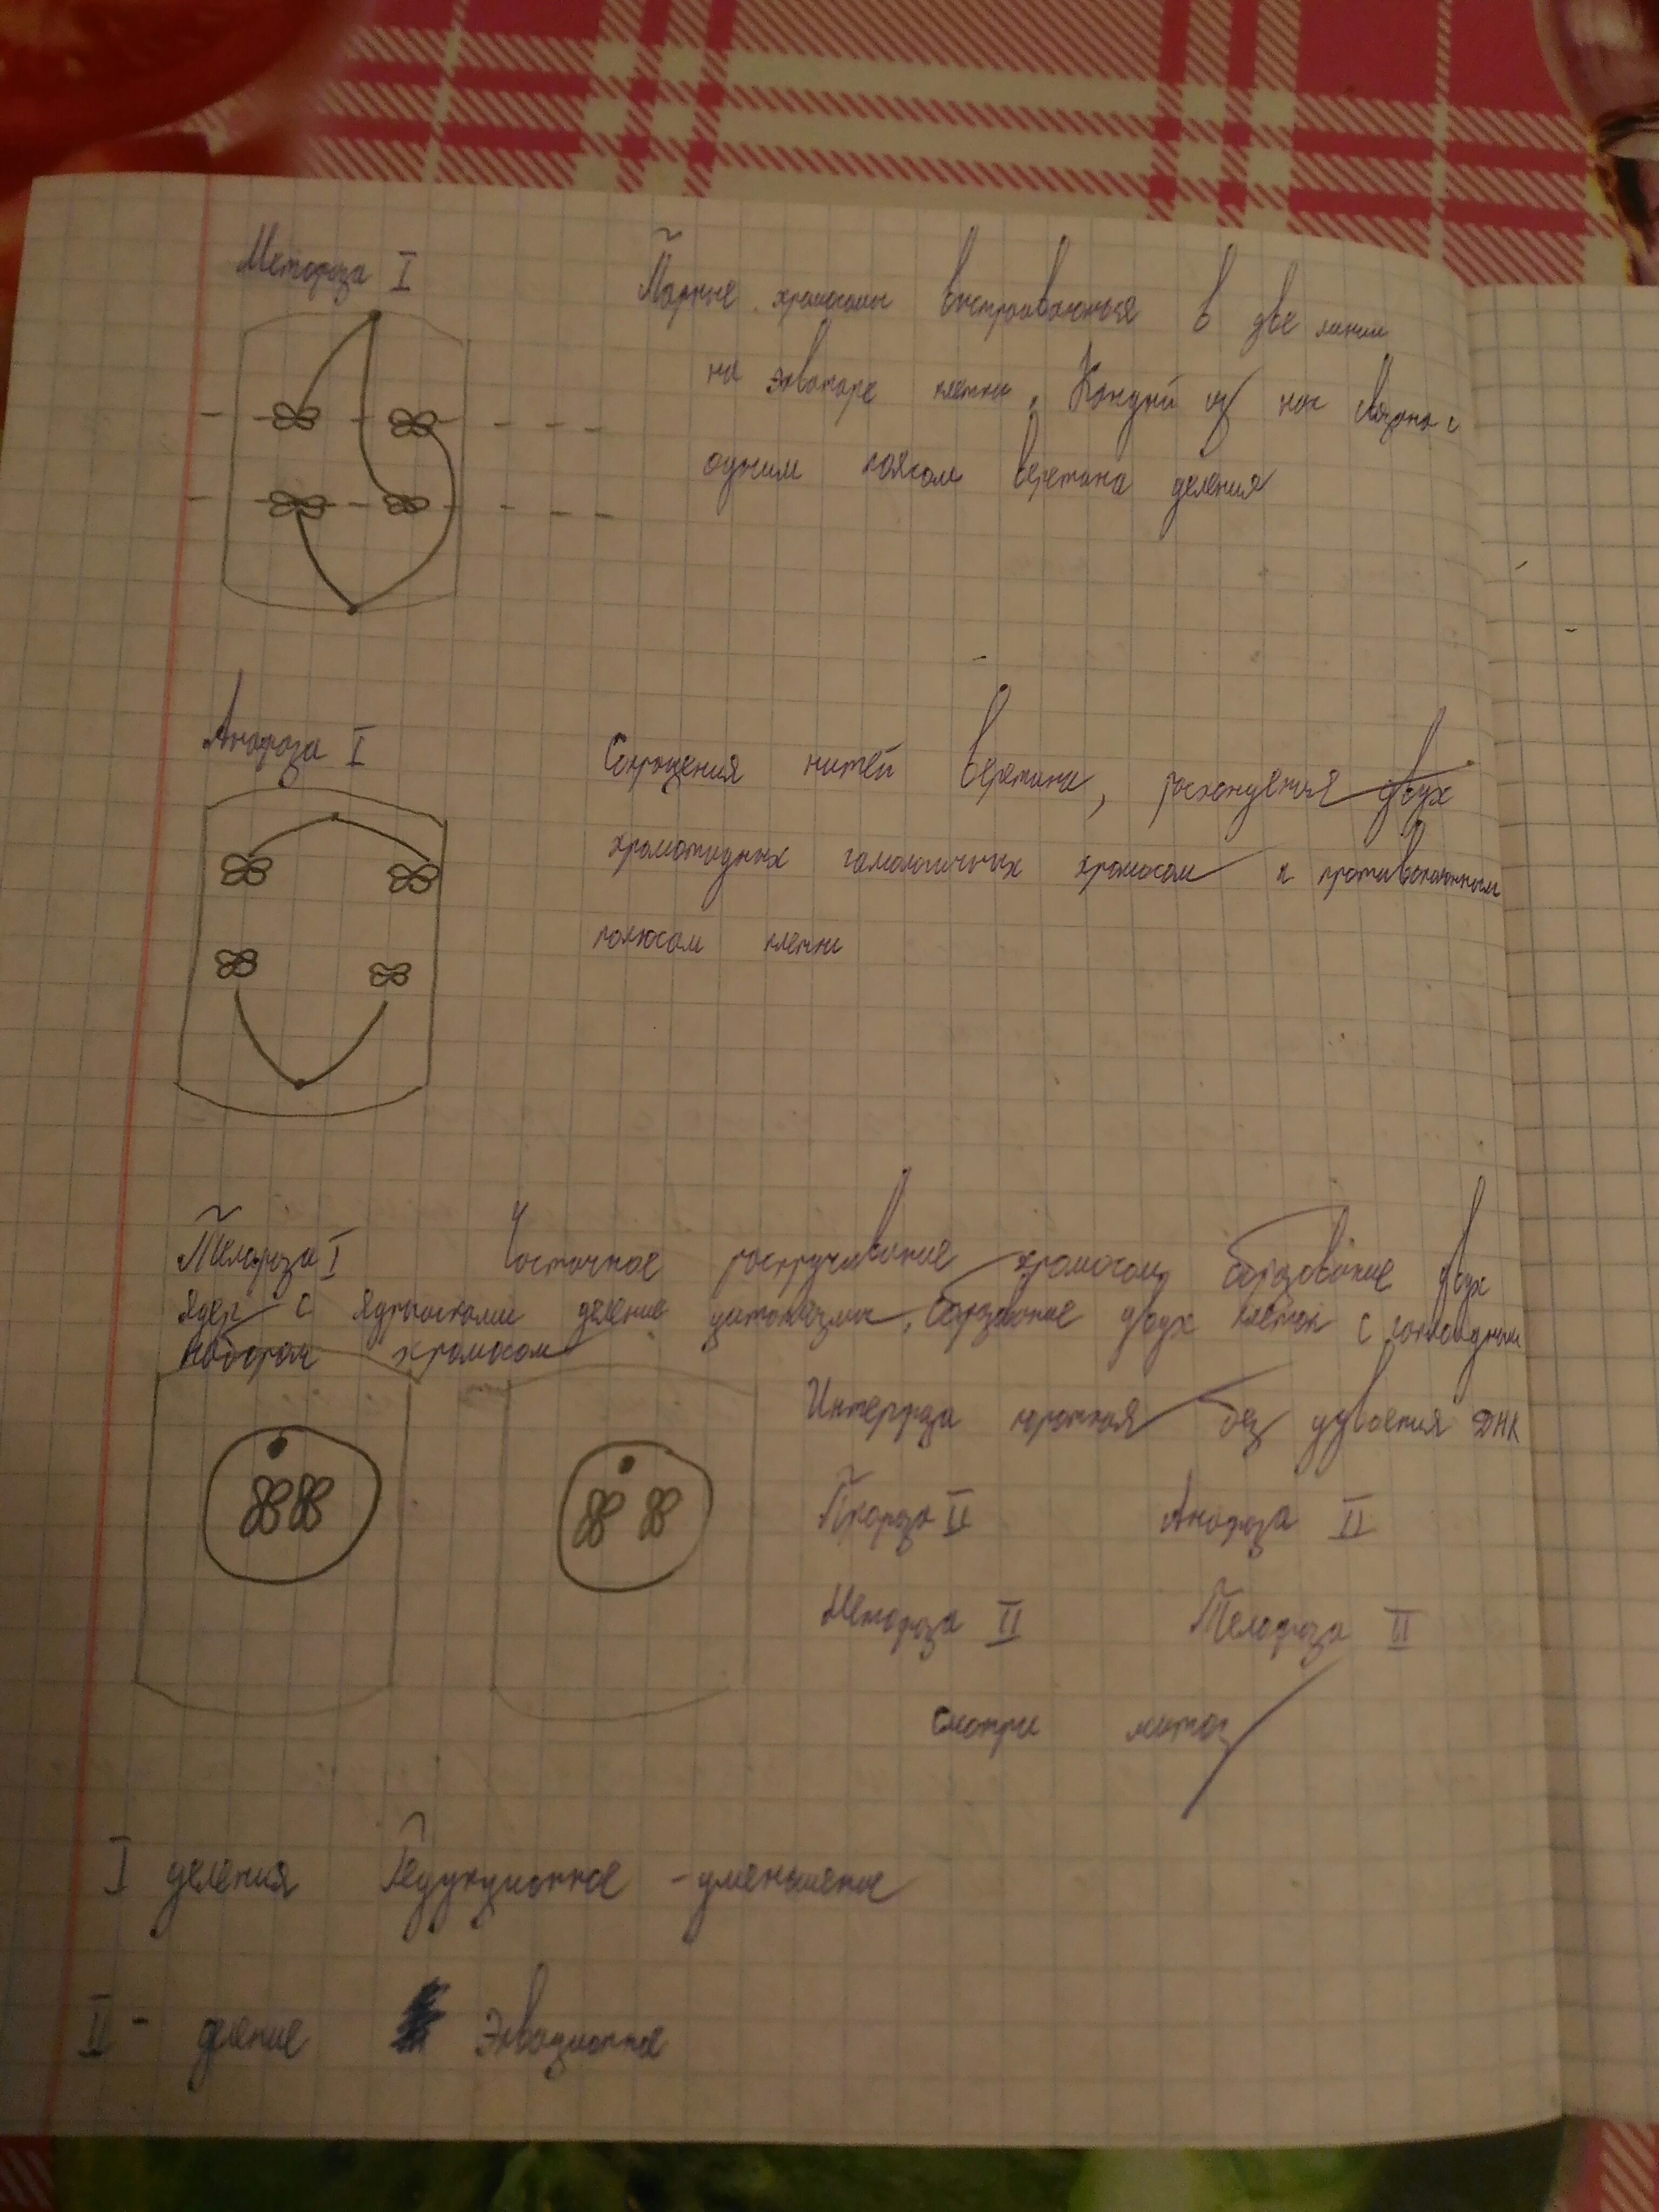 Метафаза I
Парные хромосомы выстраиваються в две линии
на экваторе клетки. Каждый из них связана с
одним полюсом веретена деления
Анафаза I
Сокращения нитей веретена, расхождения двух
хроматидных гомологичных хромосом к противоположным
полюсам клетки
Телофаза I Частичное раскручивание хромосом, образование двух
ядер с ядрышками деление цитоплазмы, образование двух клеток с гаплоидным
набором хромосом
Интерфаза короткая без удвоения ДНК
Профаза II Анафаза II
Метафаза II Телофаза II
смотри митоз
I деления Редукционное - уменьшение
II - деление Эквационное